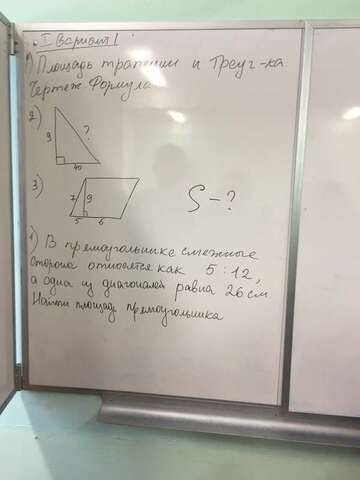 I Вариант 1
1) Площадь трапеции и Треуг-ка.
Чертеж Формула
2)
9
?
40
3)
7
9
5 6
S-?
1) В прямоугольнике смежные
стороны относятся как 5:12,
а одна из диагоналей равна 26 см
Найти площадь прямоугольника